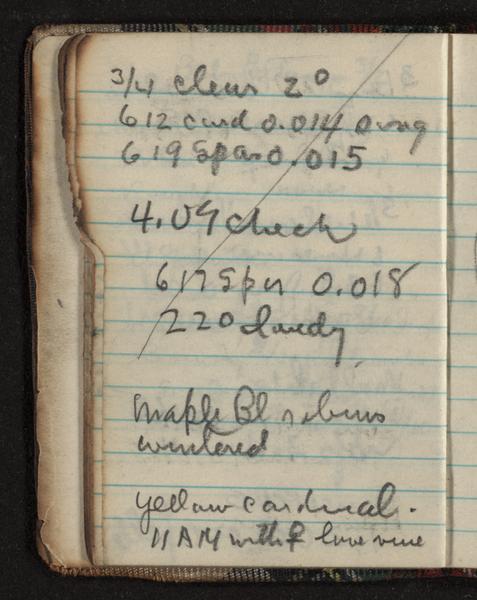 3/4 clear 2°
612 card 0.014 song
619 Spar 0.015
4.09 check
617 Spar 0.018
220 cloudy
Maple Bl robins
wintered
yellow cardinal.
11 AM with ♀ love vine